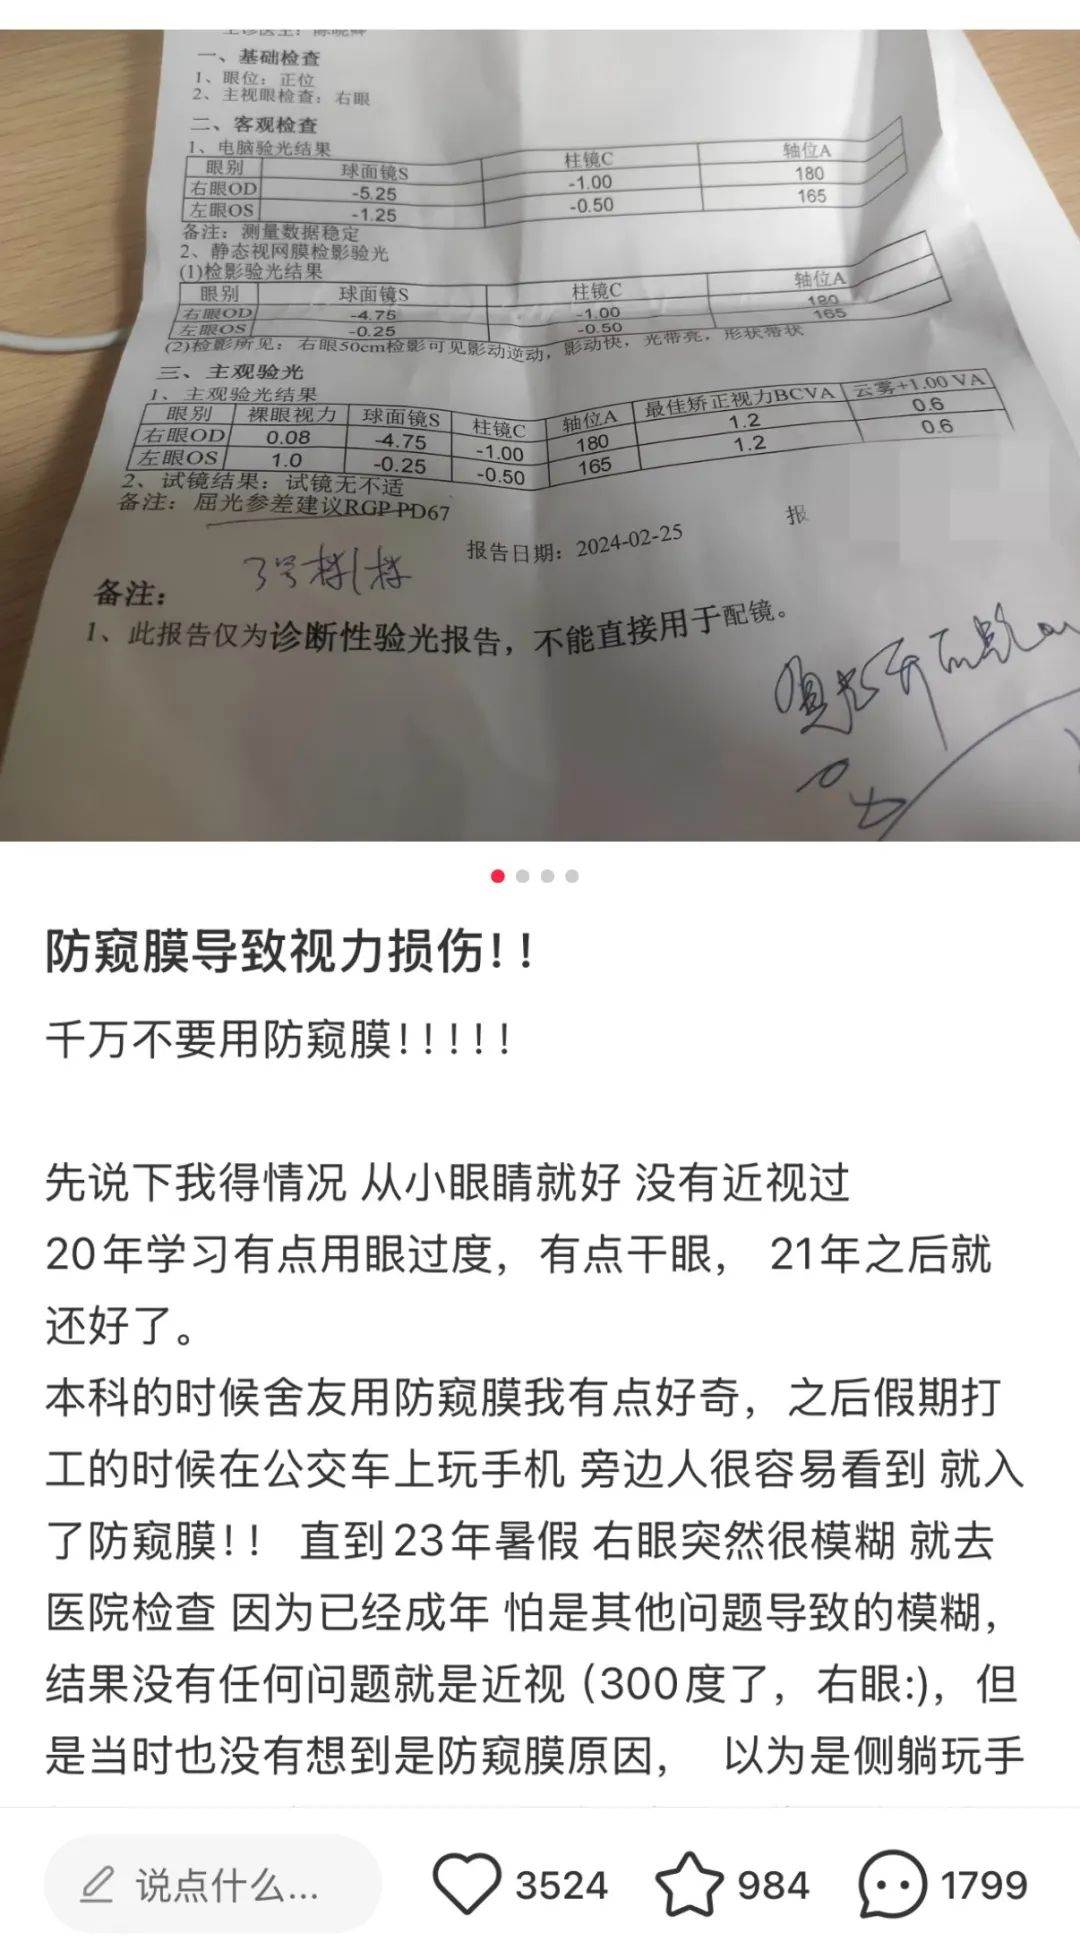 一、基础检查
1、眼位：正位
2、主视眼检查：右眼
二、客观检查
1、电脑验光结果
眼别 球面镜S 柱镜C 轴位A
右眼OD -5.25 -1.00 180
左眼OS -1.25 -0.50 165
备注：测量数据稳定
2、静态视网膜检影验光
(1)检影验光结果
眼别 球面镜S 柱镜C 轴位A
右眼OD -4.75 -1.00 180
左眼OS -0.25 -0.50 165
(2)检影所见：右眼50cm检影可见影动逆动，影动快，光带亮，形状带状
三、主观验光
1、主观验光结果
眼别 裸眼视力 球面镜S 柱镜C 轴位A 最佳矫正视力BCVA 云雾+1.00 VA
右眼OD 0.08 -4.75 -1.00 180 1.2 0.6
左眼OS 1.0 -0.25 -0.50 165 1.2 0.6
2、试镜结果：试镜无不适
备注：屈光参差建议RGP PD67
报告日期：2024-02-25 报
备注：
1、此报告仅为诊断性验光报告，不能直接用于配镜。
防窥膜导致视力损伤！！
千万不要用防窥膜！！！！！
先说下我得情况 从小眼睛就好 没有近视过
20年学习有点用眼过度，有点干眼， 21年之后就
还好了。
本科的时候舍友用防窥膜我有点好奇，之后假期打
工的时候在公交车上玩手机 旁边人很容易看到 就入
了防窥膜！！ 直到23年暑假 右眼突然很模糊 就去
医院检查 因为已经成年 怕是其他问题导致的模糊，
结果没有任何问题就是近视（300度了，右眼:)，但
是当时也没有想到是防窥膜原因， 以为是侧躺玩手
说点什么...
3524
984
1799